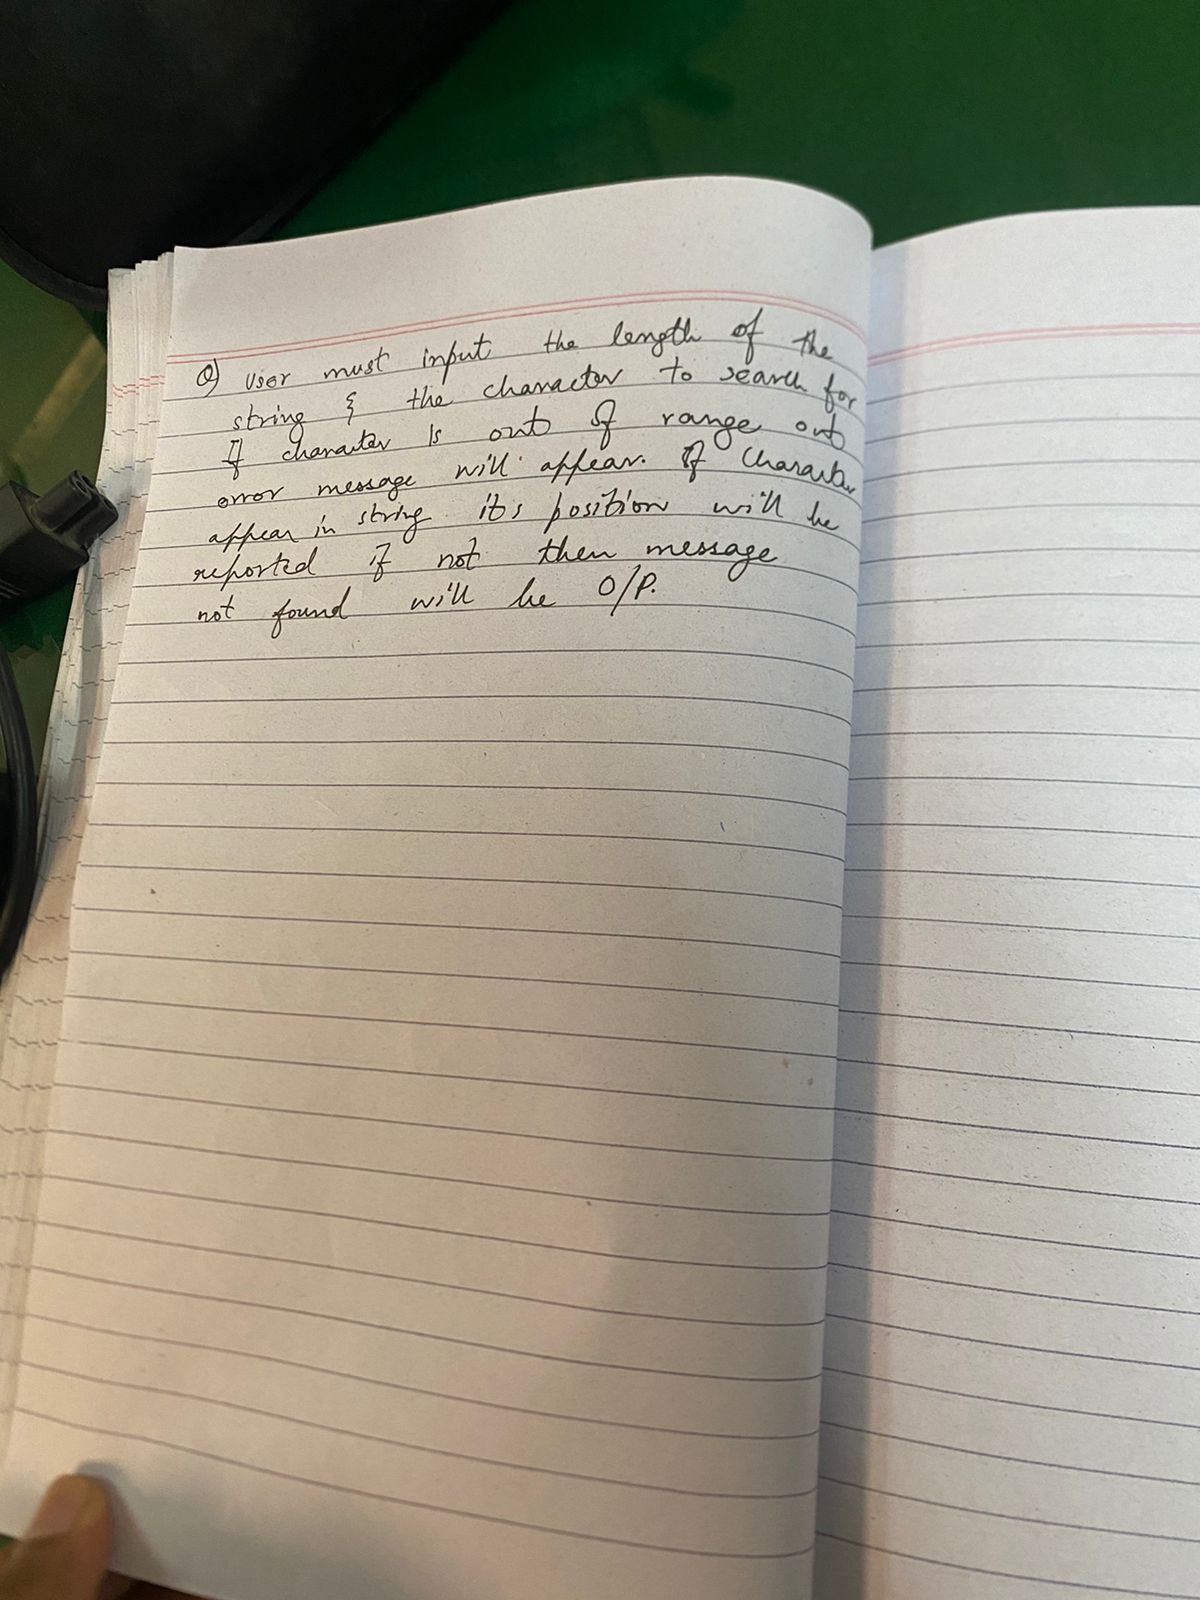 Q) User must input the length of the
string & the character to search for
If character is out of range out
error message will appear. If Character
appear in string it's position will be
reported if not then message
not found will be O/P.